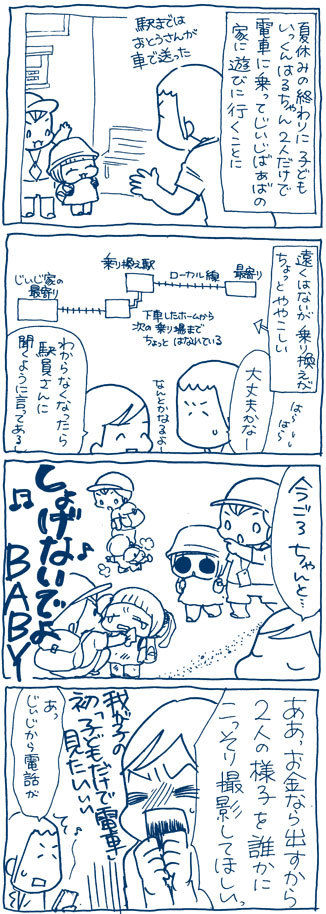 夏休みの終わりに 子ども
いっくんはるちゃん 2人だけで
電車に乗ってじぃじばぁばの
家に遊びに行くことに
駅までは
おとうさんが
車で送った
遠くはないが 乗り換えが
ちょっとややこしい
最寄り
ローカル線
乗り換え駅
じぃじ家の
最寄り
下車したホームから
次の乗り場まで
ちょっと はなれている
はら
はら
大丈夫かなー
なんとかなるよー
わからなくなったら
駅員さんに
聞くように言ってあるし
今ごろ ちゃんと…
しょげないでよ
BABY
ああっお金なら出すから
2人の様子を誰かに
こっそり撮影してほしい
我が子の
初「子どもだけで電車」
見たいいい
あっ
じぃじから電話が